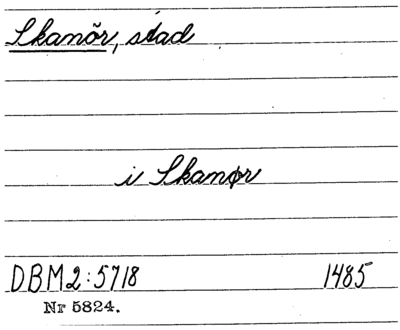 Skanör, stad
i Skanør
DBM2:5718 1485
Nr 5824.